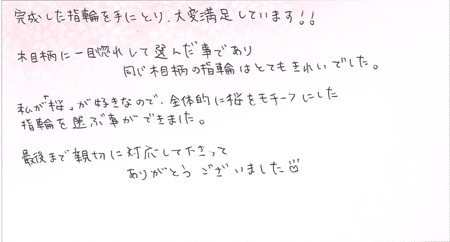 完成した指輪を手にとり、大変満足しています!!
木目柄に一目惚れして選んだ事であり
同じ木目柄の指輪はとてもきれいでした。
私が「桜」が好きなので、全体的に桜をモチーフにした
指輪を選ぶ事ができました。
最後まで親切に対応して下さって
ありがとうございました